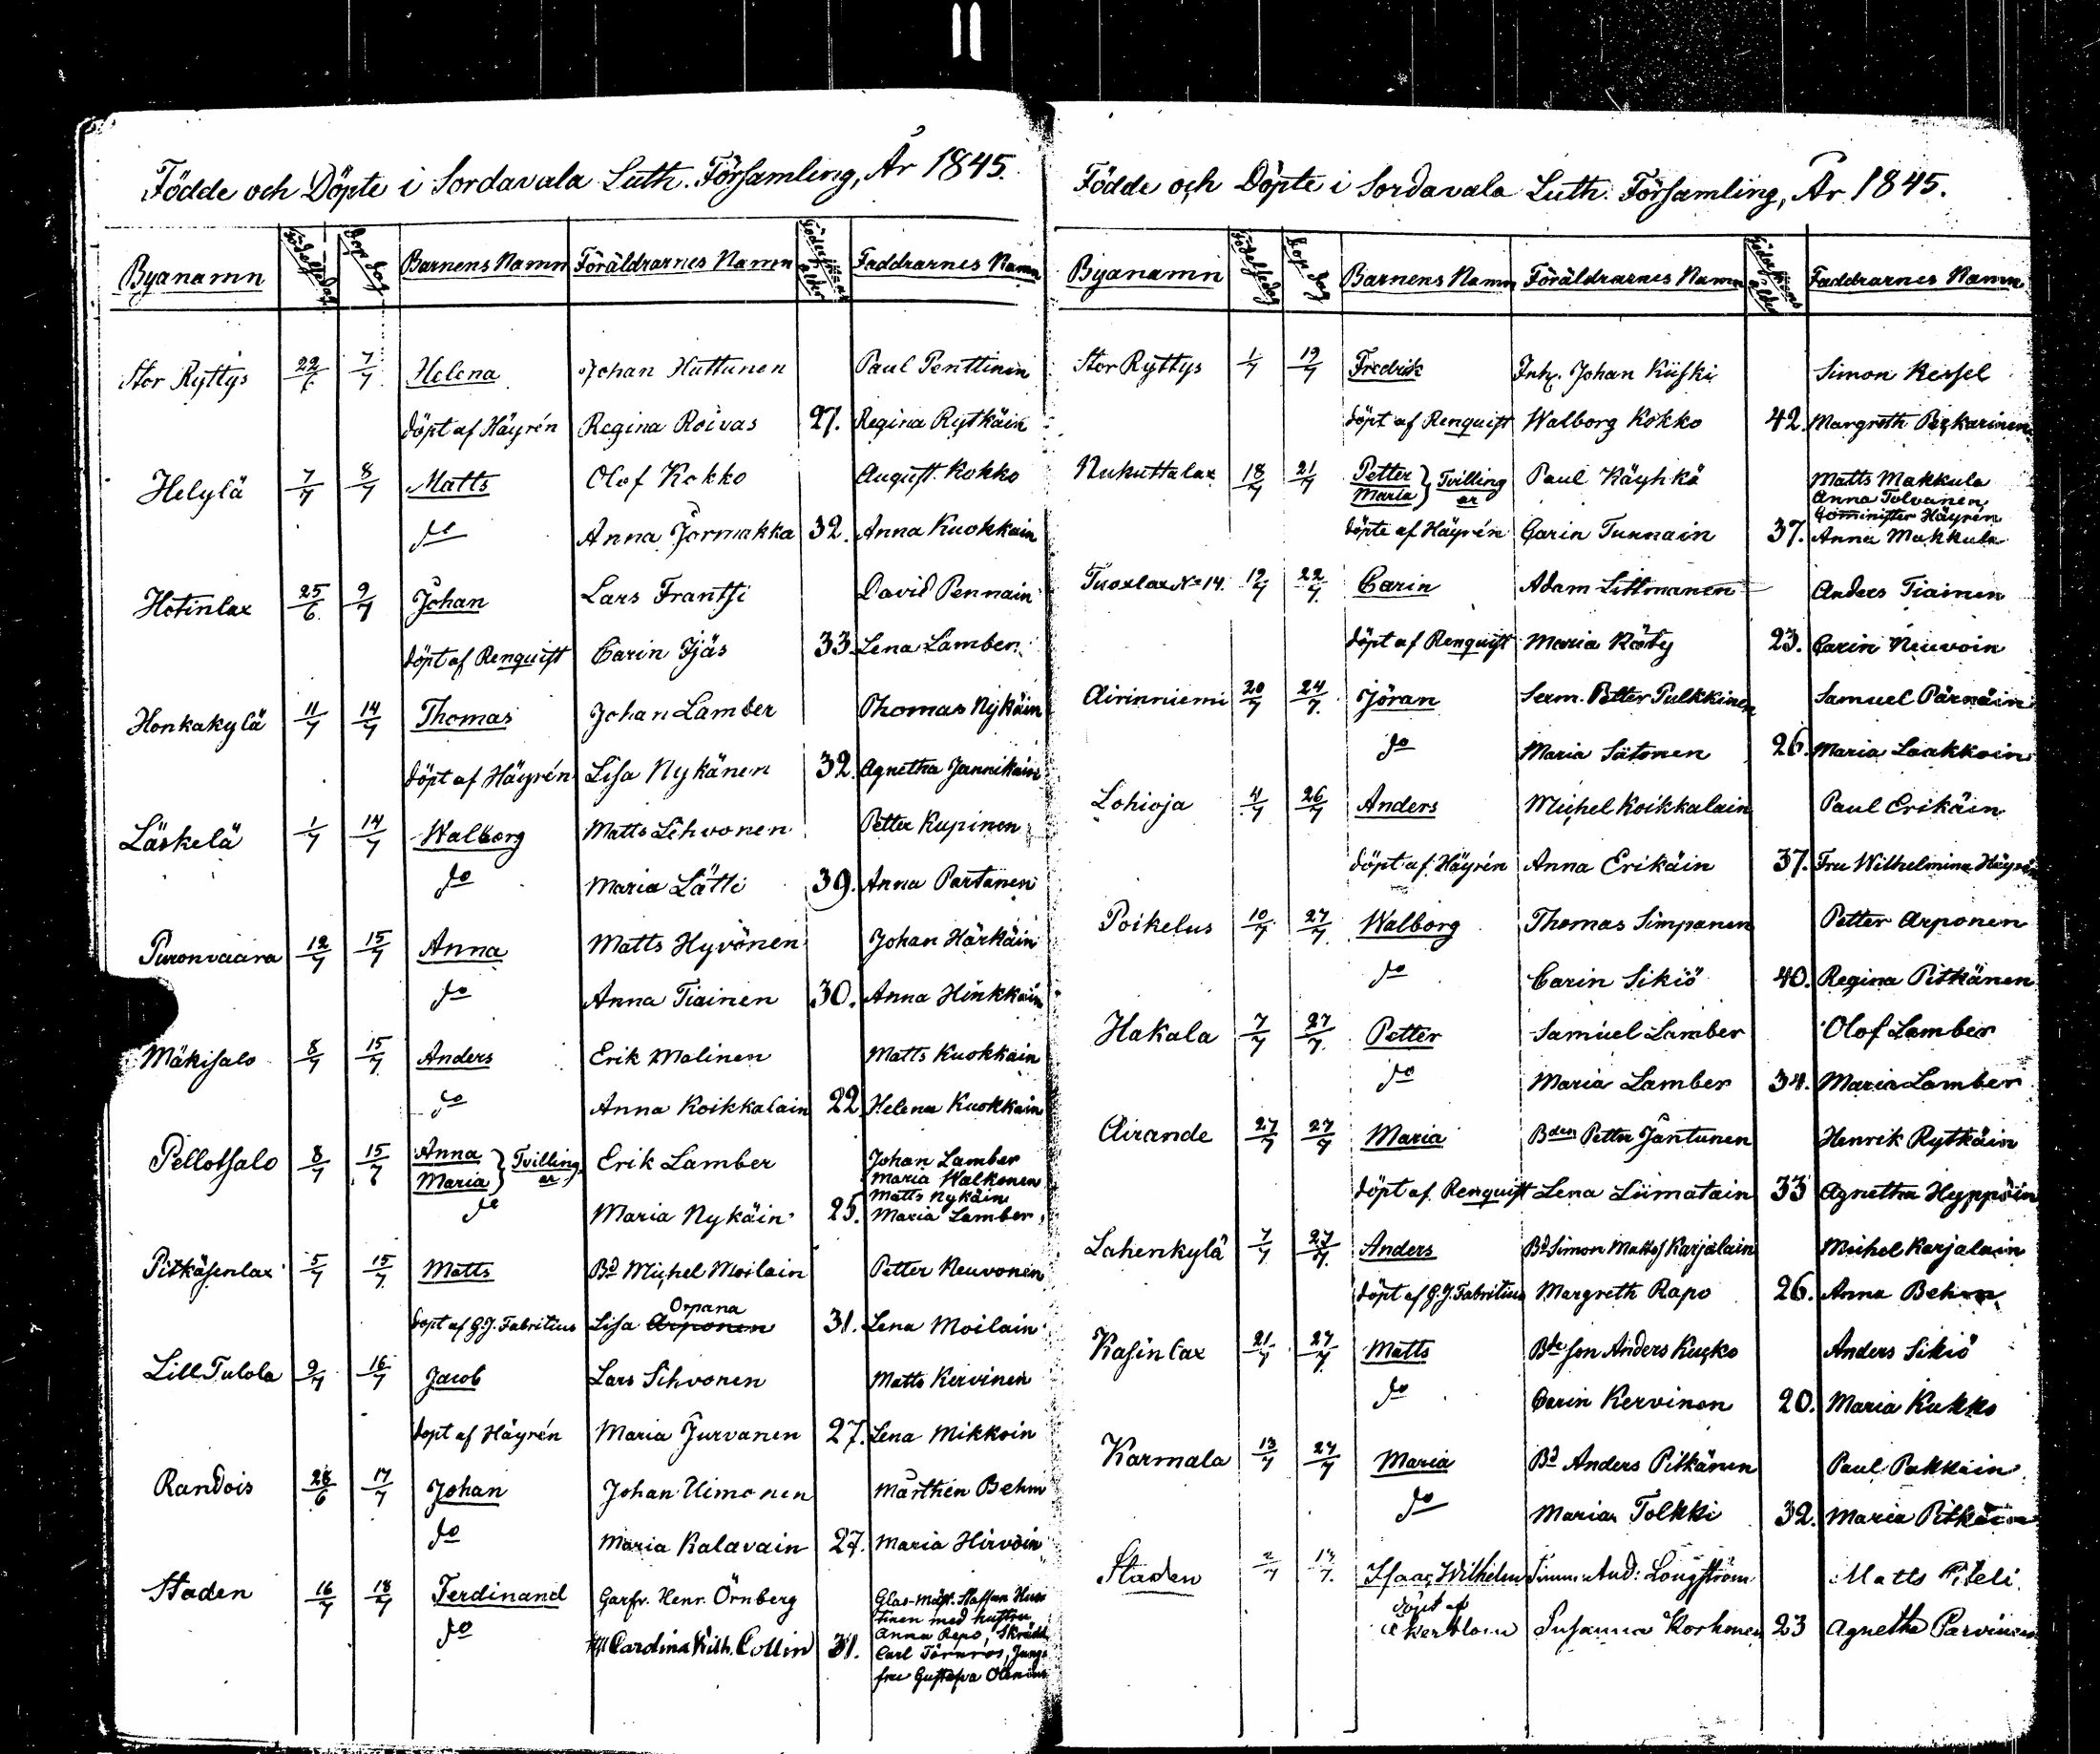 Födde och Döpte i Sordavala Luth. Församling, År 1845.
Byanamn Födelsedag Dop dag Barnens Namn Föräldrarnes Namn Föderskans ålder Faddrarnes Namn
Stor Ryttys 22/6 7/7 Helena Johan Huttunen Paul Penttinin
döpt af Häyrén Regina Roivas 27. Regina Rytkäin
Helylä 7/7 8/7 Matts Olof Kokko August Kokko
do Anna Jormakka 32. Anna Kuokkain
Hotinlax 25/6 9/7 Johan Lars Frantsi David Pennain
döpt af Renquist Carin Ijäs 33. Lena Lamber
Honkakylä 11/7 14/7 Thomas Johan Lamber Thomas Nykäin
döpt af Häyrén Lisa Nykänen 32. Agnetha Jannikäin
Läskelä 1/7 14/7 Walborg Matts Sihvonen Petter Kupinen
do Maria Lätti 39. Anna Partanen
Puronvaara 12/7 15/7 Anna Matts Hyvönen Johan Härkäin
do Anna Tiainen 30. Anna Hinkkain
Mäkisalo 8/7 15/7 Anders Erik Malinen Matts Kuokkain
do Anna Koikkalain 22. Helena Kuokkain
Pellotsalo 8/7 15/7 Anna Maria } Tvillingar Erik Lamber Johan Lamber
Maria Walkonen
Matts Nykäin
do Maria Nykäin 25. Maria Lamber
Pitkäsenlax 5/7 15/7 Matts Bd Michel Moilain Petter Neuvonen
döpt af G.J. Fabritius Lisa Arponen Orpana 31. Lena Moilain
Lill Tulola 9/7 16/7 Jacob Lars Sihvonen Matts Kervinen
döpt af Häyrén Maria Jurvanen 27. Lena Mikkoin
Randois 28/6 17/7 Johan Johan Uimonen Mårthen Behm
do Maria Kalavain 27. Maria Hirvoin
Staden 16/7 18/7 Ferdinand Garfv. Henr. Örnberg Glas-mäst. Staffan Hus
tinen med hustru
do Carolina Wilh. Collin 31. Anna Repo, Skrädd.
Carl Törnros, Jung-
fru Gustafva
Födde och Döpte i Sordavala Luth. Församling, År 1845.
Byanamn Födelsedag Dop dag Barnens Namn Föräldrarnes Namn Föderskans ålder Faddrarnes Namn
Stor Ryttys 1/7 19/7 Fredrik Inh. Johan Kiiski Simon Kessel
döpt af Renquist Walborg Kokko 42. Margreth Pekarinen
Nukuttalax 18/7 21/7 Petter Maria } Tvillingar Paul Käyhkö Matts Makkula
Anna Tolvanen
Cominister Häyrén
döpte af Häyrén Carin Tunnain 37. Anna Makkula
Tuoxlax No 14. 19/7 22/7 Carin Adam Littmanen Anders Tiainen
döpt af Renquist Maria Räty 23. Carin Neuvoin
Airinniemi 20/7 24/7 Jöran Serm. Petter Pulkkinen Samuel Pärnäin
do Maria Sutonen 26. Maria Laakkoin
Lohioja 4/7 26/7 Anders Michel Koikkalain Paul Erikäin
döpt af Häyrén Anna Erikäin 37. Fru Wilhelmina Häyrén
Poikelus 10/7 27/7 Walborg Thomas Simpanen Petter Arponen
do Carin Sikiö 40. Regina Pitkänen
Hakala 7/7 27/7 Petter Samuel Lamber Olof Lamber
do Maria Lamber 34. Maria Lamber
Airande 27/7 27/7 Maria Bden Petter Jantunen Henrik Rytkäin
döpt af Renquist Lena Liimatain 33 Agnetha Hyppöin
Lahenkylä 7/7 27/7 Anders Bd Simon Matts Karjalain Michel Karjalain
döpt af G.J. Fabritius Margreth Rapo 26. Anna Behm
Kasinlax 21/7 27/7 Matts Bde son Anders Kukko Anders Sikiö
do Carin Kervinen 20. Maria Kukko
Karmala 13/7 27/7 Maria Bd Anders Pitkänen Paul Pakkain
do Maria Tolkki 32. Maria Pitkäin
Staden 2/7 13/7 Isaac Wilhelm Timm. And: Longström Matts Piteli
döpt af
Åkerblom Susanna Korhonen 23 Agnetha Parvinen